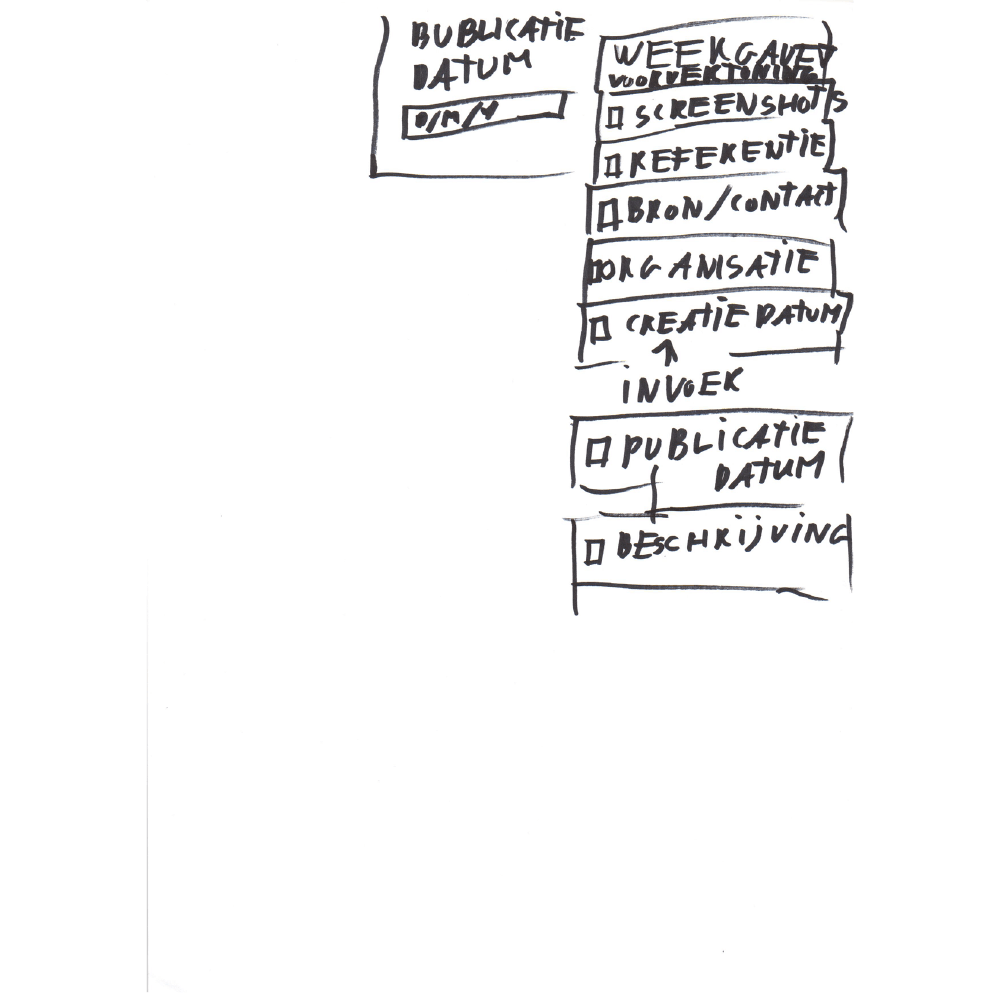 BUBLICATIE
DATUM
D/M/Y
WEEKGAVE
VOORVERTONING
SCREENSHOTS
REFERENTIE
BRON/CONTACT
ORGANISATIE
CREATIE DATUM
INVOER
PUBLICATIE
DATUM
BESCHRIJVING